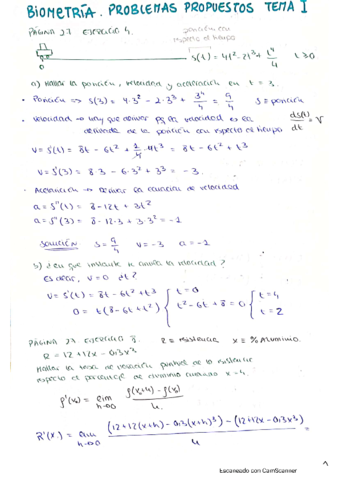 BIOMETRÍA. PROBLEMAS PROPUESTOS TEMA I
PÁGINA 27 EJERCICIO 4.
posición con
respecto el tiempo
s(t) = 4t² - 2t³ + t⁴/4 t ≥ 0
a) Hallar la posición, velocidad y aceleración en t = 3.
• Posición => s(3) = 4·3² - 2·3³ + 3⁴/4 = 9/4 s = posición
• Velocidad → hay que derivar pq la velocidad es la ds(t)/dt = v
derivada de la posición con respecto el tiempo
v = s'(t) = 8t - 6t² + 1/4 · 4t³ = 8t - 6t² + t³
v = s'(3) = 8·3 - 6·3² + 3³ = -3.
• Aceleración → derivar la ecuación de velocidad
a = s''(t) = 8 - 12t + 3t²
a = s''(3) = 8 - 12·3 + 3·3² = -1
SOLUCIÓN s = 9/4 v = -3 a = -1
b) ¿En que instante se anula la velocidad?
Es decir, v = 0 ¿t?
v = s'(t) = 8t - 6t² + t³ { t = 0
0 = t(8 - 6t + t²) { t² - 6t + 8 = 0 { t = 4
t = 2
PÁGINA 27 EJERCICIO 8. R = Resistencia x = % Aluminio.
R = 12 + 12x - 0,3x³
Hallar la tasa de variación puntual de la resistencia
respecto el porcentaje de aluminio cuando x = 4.
f'(x₀) = lim h→0 f(x₀+h) - f(x₀) / h
R'(x) = lim h→0 (12 + 12(x+h) - 0,3(x+h)³) - (12 + 12x - 0,3x³) / h =
1
Escaneado con CamScanner